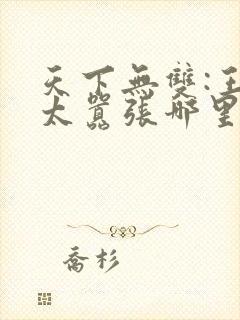 天下無雙:王
太囂張哪里
喬杉